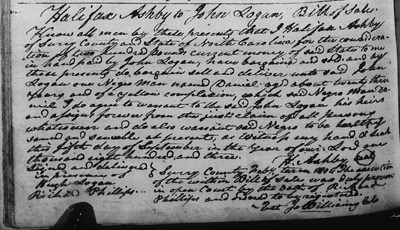 Halifax Ashby to John Logan, Bill of Sale.
Know all men by these presents that I Halifax Ashby
of Surry County and State of North Carolina for the consider=
ation of hundred and currency of said State to me
in hand paid by John Logan, have bargained and sold, and by
these presents do bargain sell and deliver unto said John
Logan one Negro man named Daniel, aged about twenty three
years and of a yellow complexion, which said Negro man Da=
niel I do agree to warrant to the said John Logan his heirs
and assigns forever from the just claim of all persons
whatsoever and do also warrant said Negro to be healthy
sound and sensible at present, as Witness my hand & seal
this fifth day of September in the Year of our Lord one
thousand eight hundred and three.
H. Ashby seal
Signed and delivered
in presence of
Hugh Logan
Richard Phillips
Surry County term The execution
of the within Bill of Sale was duly proven
in open Court by the oath of Richard
Phillips and ordered to be registered.
Test Jo Williams